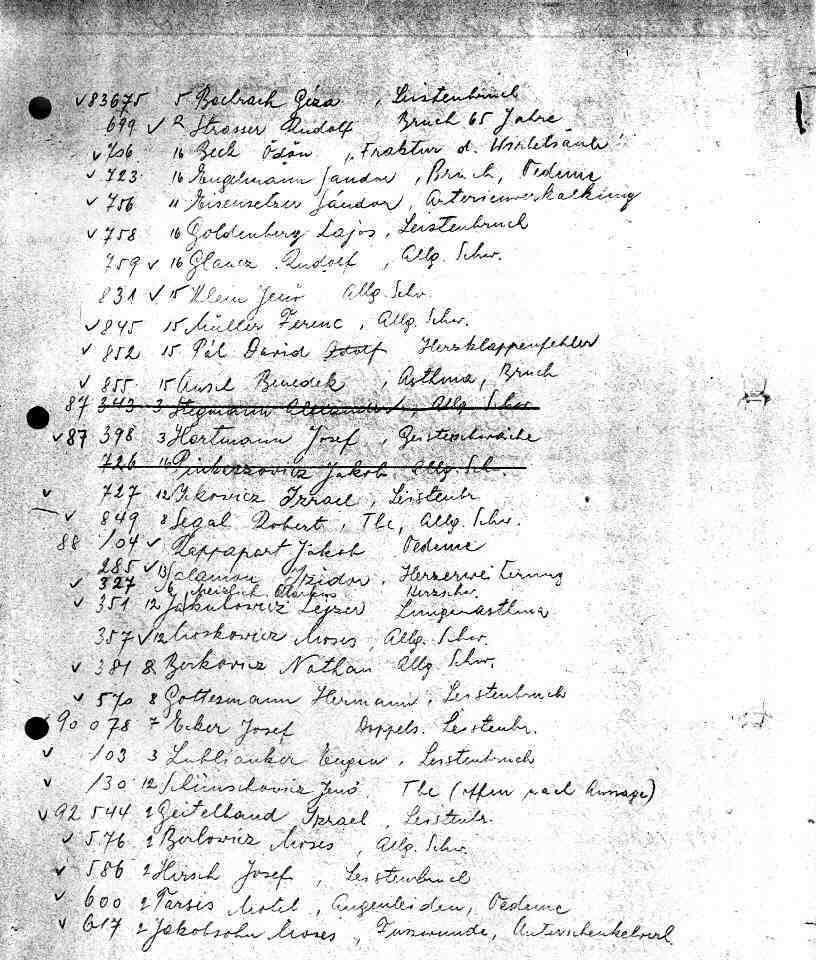 ✓ 83675 5 Bachrach Géza, Leistenbruch
699 ✓ 2 Strasser Rudolf Bruch 65 Jahre
✓ 706 16 Beck Ödön, Fraktur d. Wirbelsäule
✓ 723 16 Engelmann Sandor, Bruch, Oedeme
✓ 756 11 Eisensetzer Sándor, Arterienverkalkung
✓ 758 16 Goldenberg Lajos, Leistenbruch
759 ✓ 16 Glancz Rudolf, Allg. Schw.
831 ✓ 15 Klein Jenö Allg. Schw.
✓ 845 15 Müller Ferenc, Allg. Schw.
✓ 852 15 Pál David Adolf Herzklappenfehler
✓ 855 15 Ansel Benedek, Asthma, Bruch
87 343 3 Stegmann Allg. Schw.
✓ 87 398 3 Hartmann Josef, Geistesschwäche
726 16 Pinkeszovicz Jakob Allg. Schw.
✓ 727 12 Ickovicz Izrael, Leistenbr.
✓ 849 8 Segal Robert, Tbc, Allg. Schw.
88 104 ✓ Rappapart Jakob Oedeme
285 ✓ 13 Salamon Izidor, Herzerweiterung
✓ 327 Herzschw.
✓ 351 12 Jakubovicz Lejzer Lungenasthma
357 ✓ 12 Moskovicz Moses, Allg. Schw.
✓ 381 8 Berkovicz Nathan Allg. Schw.
✓ 570 8 Gottesmann Hermann, Leistenbruch
90 078 7 Ecker Josef Doppels. Leistenbr.
✓ 103 3 Lublianker Eugen, Leistenbruch
✓ 130 12 Slimschovicz Jenö Tbc (offen nach Aussage)
✓ 92 544 2 Zeitelbaud Izrael, Leistenbr.
✓ 576 2 Berlovicz Moses, Allg. Schw.
✓ 586 2 Hirsch Josef, Leistenbruch
✓ 600 2 Tarsis Motel, Augenleiden, Oedeme
✓ 617 2 Jakobsohn Moses, Fusswunde, Unterschenkelverl.